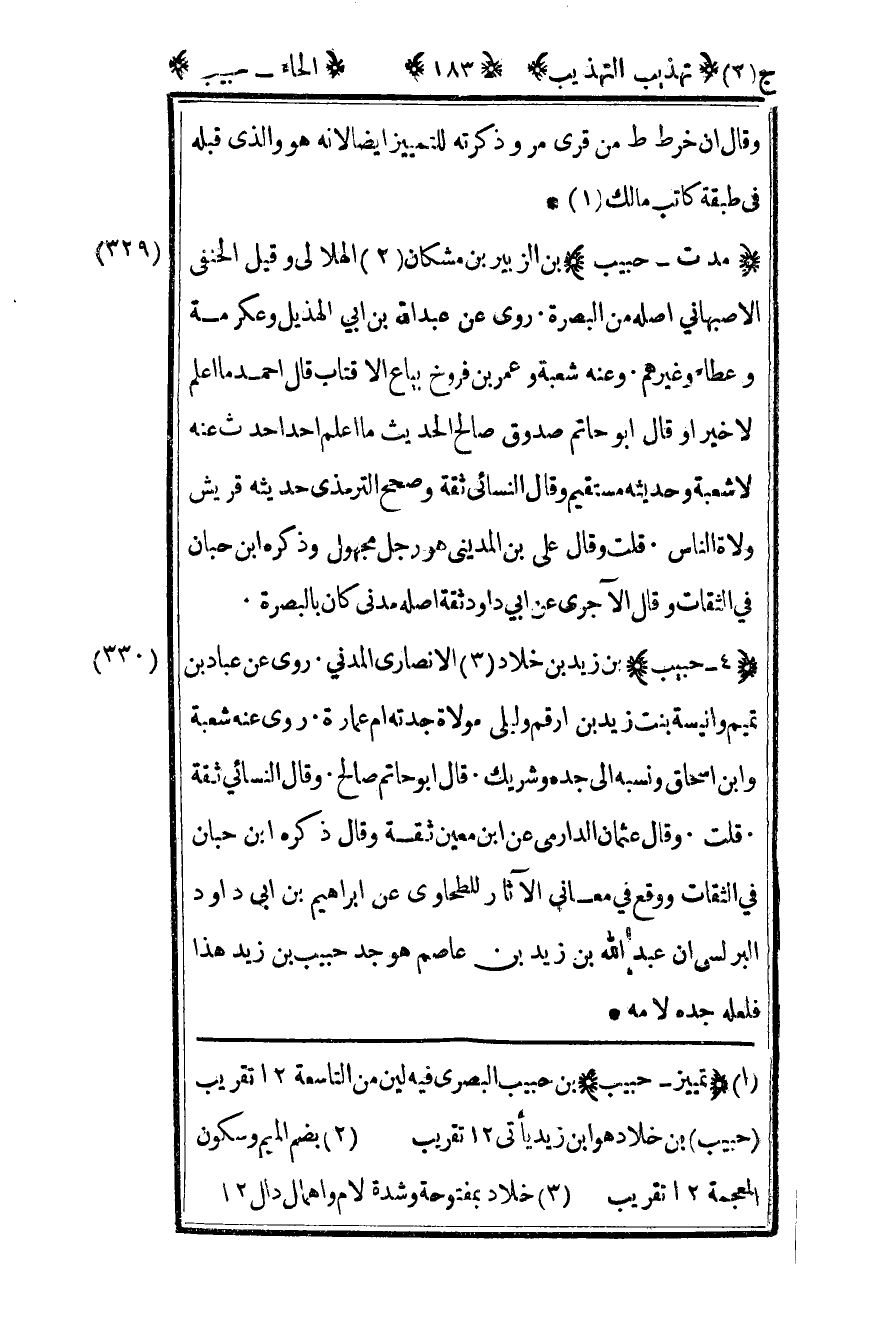 ج(٢) ﴿ تهذيب التهذيب ﴾ ﴿ ١٨٣ ﴾ ﴿ الحاء ـ حبيب ﴾
وقال ان خرط ط من قرى مر و ذكرته للتمييز ايضا لانه هو والذى قبله
فى طبقة كاتب مالك (١) *
﴿ مد ت ـ حبيب ﴾ بن الزبير بن مشكان (٢) الهلالى وقيل الحنفى (٣٢٩)
الاصبهاني اصله من البصرة ٠ روى عن عبد الله بن ابي الهذيل وعكرمـة
و عطاء وغيرهم ٠ وعنه شعبة و عمر بن فروخ بياع الاقتاب قال احمـد ما اعلم
لاخيرا و قال ابو حاتم صدوق صالح الحديث ما اعلم احدا حدث عنه
لا شعبة وحديثه مستقيم وقال النسائى ثقة وصحح الترمذى حديثه قريش
ولاة الناس ٠ قلت وقال على بن المدينى هو رجل مجهول وذكره ابن حبان
في الثقات و قال الآجرى عن ابي داود ثقة اصله مدنى كان بالبصرة ٠
﴿ ٤ ـ حبيب ﴾ بن زيد بن خلاد (٣) الانصارى المدني ٠ روى عن عباد بن (٣٣٠)
تميم وانيسة بنت زيد بن ارقم وليلى مولاة جدته ام عمارة ٠ روى عنه شعبة
وابن اسحاق ونسبه الى جده وشريك ٠ قال ابو حاتم صالح ٠ وقال النسائي ثقة
٠ قلت ٠ وقال عثمان الدارمى عن ابن معين ثقـة وقال ذكره ابن حبان
في الثقات ووقع في معـاني الآثار للطحاوى عن ابراهيم بن ابى داود
البرلسى ان عبد الله بن زيد بن عاصم هو جد حبيب بن زيد هذا
فلعله جده لامه *
(١) ﴿ تمييز ـ حبيب ﴾ بن حبيب البصرى فيه لين من التاسعة ١٢ تقريب
(حبيب) بن خلاد هو ابن زيد يأتى ١٢ تقريب (٢) بضم الميم وسكون
المعجمة ١٢ تقريب (٣) خلاد بمفتوحة وشدة لام واهمال دال ١٢